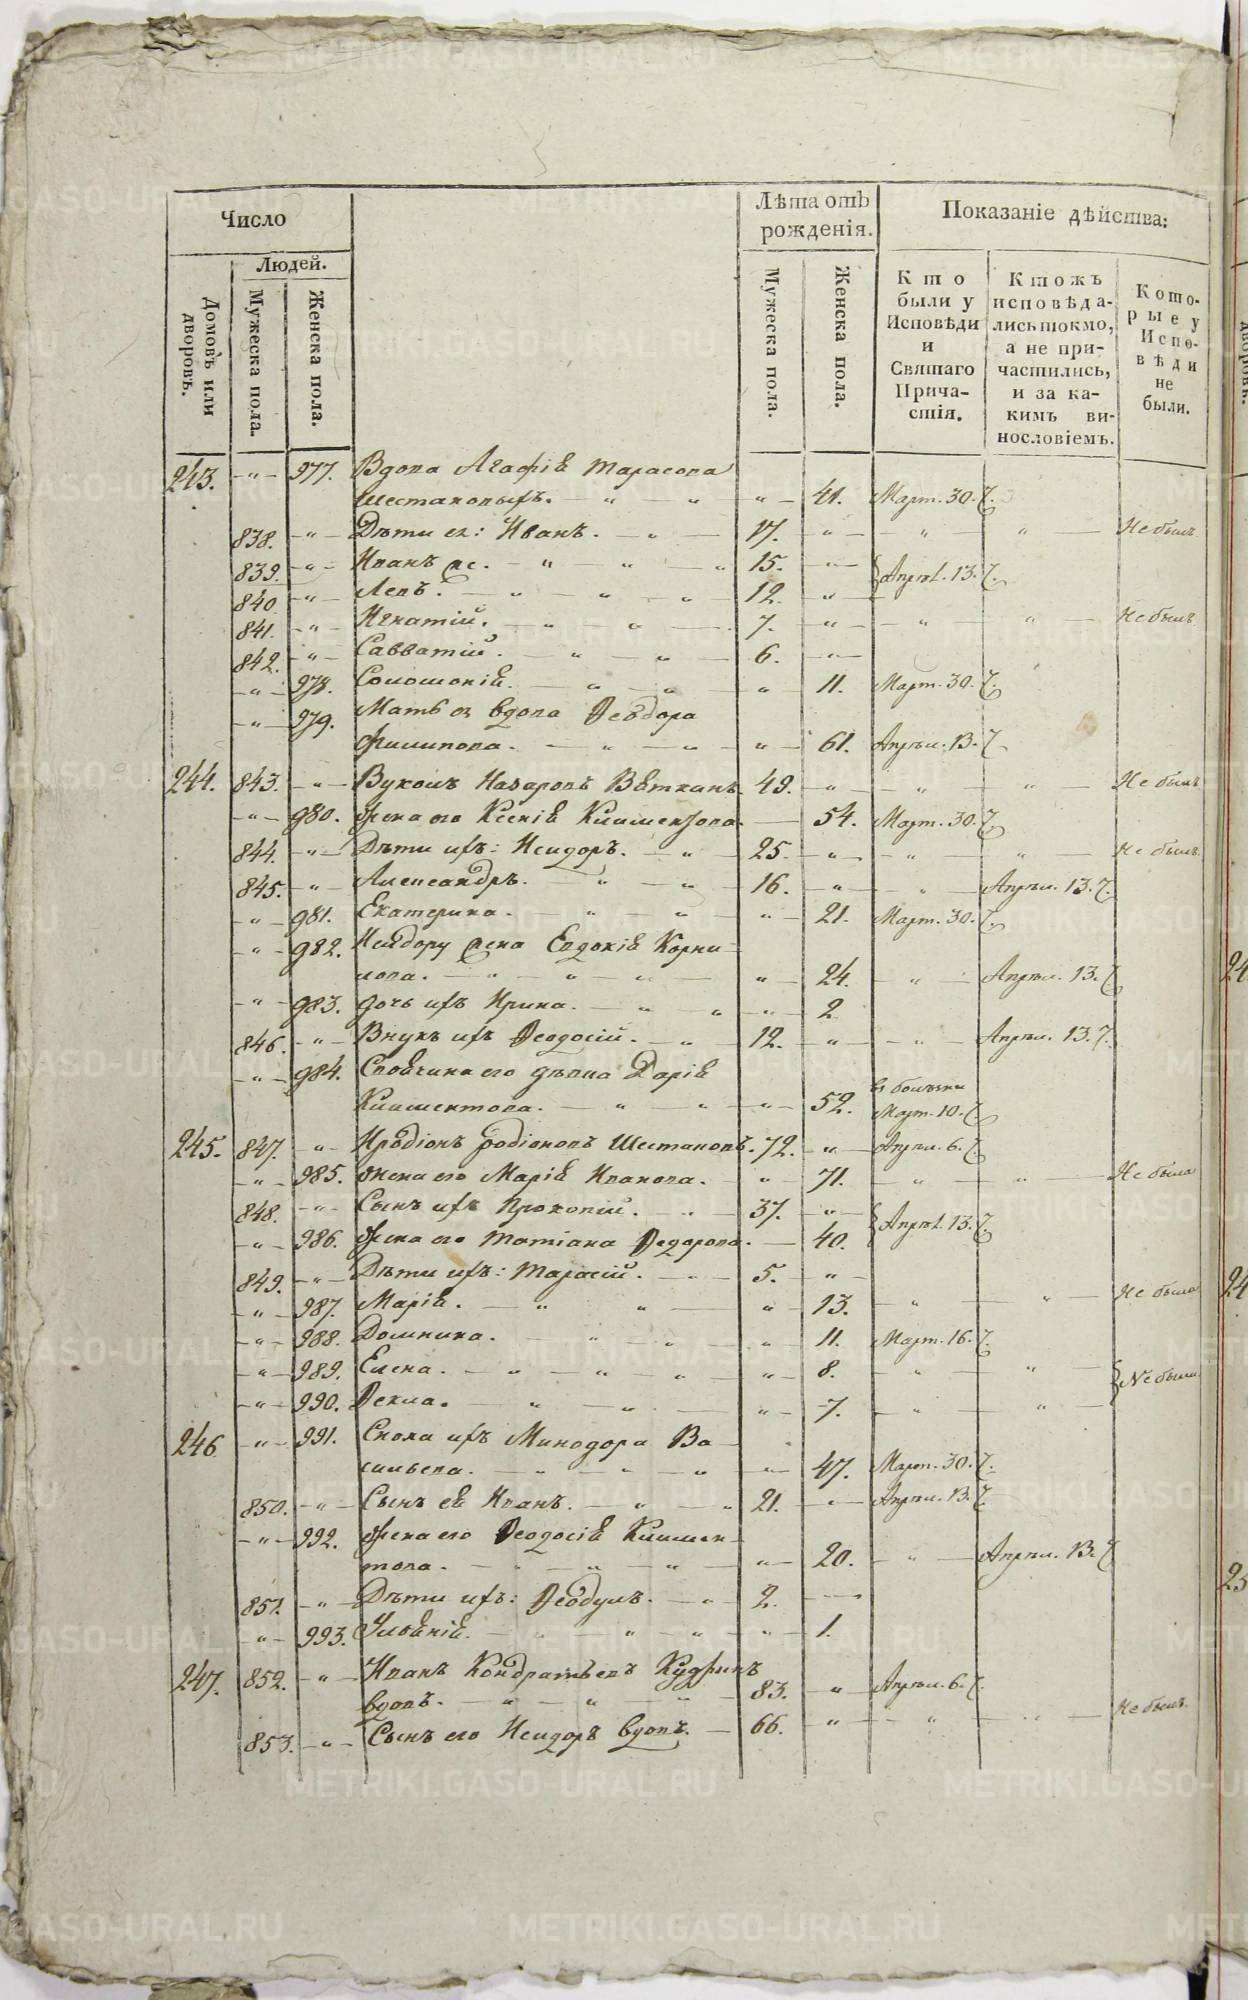 Число
Лѣта отъ рожденія.
Показаніе дѣйства:
Людей.
Домовъ или дворовъ.
Мужеска пола.
Женска пола.
Мужеска пола.
Женска пола.
Кто были у Исповѣди и Святаго Причастія.
Ктожъ исповѣдались токмо, а не причастились, и за какимъ винословіемъ.
Которые у Исповѣди не были.
243. -"- 977. Вдова Агафія Тарасова
Шестаковыхъ. - " - " " - 41. Март. 30.
838. -"- Дѣти ея: Иванъ. - " - 17. -"- -"- " - Не былъ
839. -"- Иванъ же. - " - " - " 15. -"- Апрѣл. 13.
840 -"- Левъ. - " " " 12. "
841. -"- Игнатій. - " " - 7. -"- -"- " - Не былъ
842. -"- Савватій. - " - " - 6. -"-
-"- 978. Соломонія. - " - " - " 11. Март. 30.
-"- 979. Мать ея вдова Ѳеодора
Филипова. - " - " - " - 61. Апрѣл. 13.
244. 843. -"- Вуколъ Назаровъ Вѣткинъ 49. -"- -"- " - Не былъ
-"- 980. Жена его Ксенія Климентова - 54. Март. 30.
844. -"- Дѣти ихъ: Исидоръ. - " - 25. -"- -"- " - Не былъ.
845. -"- Александръ. - " - " - 16. -"- -"- Апрѣл. 13.
-"- 981. Екатерина. - " - " - " - 21. Март. 30.
-"- 982. Исидору жена Евдокія Корни-
лова. - " - " - " - " 24. -"- Апрѣл. 13.
-"- 983. Дочь ихъ Ирина. - " " -"- 2
846. -"- Внукъ ихъ Ѳеодосій. - " - 12. -"- -"- Апрѣл. 13.
-"- 984. Своячина его дѣвка Дарія
Климентова. - " - " -"- 52. въ болѣзни
Март. 10.
245. 847. -"- Иродіонъ Родіоновъ Шестаковъ. 72. -"- Апрѣл. 6.
-"- 985. Жена его Марія Иванова. - " - 71. -"- " - Не была
848. -"- Сынъ ихъ Прокопій. - " - 37. -"- Апрѣл. 13.
-"- 986. Жена его Татіана Ѳедорова. - 40.
849. -"- Дѣти ихъ: Тарасій. - " - 5. -"-
-"- 987. Марія. - " " - " - 13. -"- " - Не была
-"- 988. Домника. - " - " - " - 11. Март. 16.
-"- 989. Елена. - " - " - " -"- 8. -"- " - Не были
-"- 990. Ѳекла. - " - " - -"- 7. -"- "
246 -"- 991. Сноха ихъ Минодора Ва-
сильева. - " - " - " -"- 47. Март. 30.
850. -"- Сынъ ея Иванъ. - " - " 21. -"- Апрѣл. 13.
-"- 992. Жена его Ѳеодосія Климен-
това. - " " " "- 20. -"- Апрѣл. 13.
851. -"- Дѣти ихъ: Ѳеодулъ. - " - 2. -
-"- 993. Ульянія. - " - " - " - " - 1.
247. 852. -"- Иванъ Кондратьевъ Кудринъ
вдовъ. - " - " - " - 83. " Апрѣл. 6.
853. -"- Сынъ его Исидоръ вдовъ. - 66. -"- -"- " - Не былъ.
24
24
25
METRIKI.GASO-URAL.RU